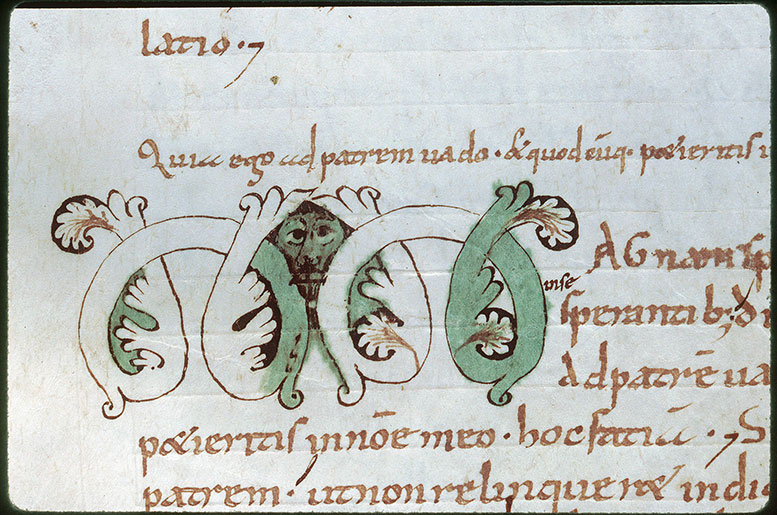 latio·⁊
Quia ego ad patrem uado · & quodcūq· p&ieritis i
MAGnam sp
inse
sperantib;
Ad patrē ua
p&ieritis in nōe meo · hoc fatiā · ⁊ S
patrem · ut non relinquer& in